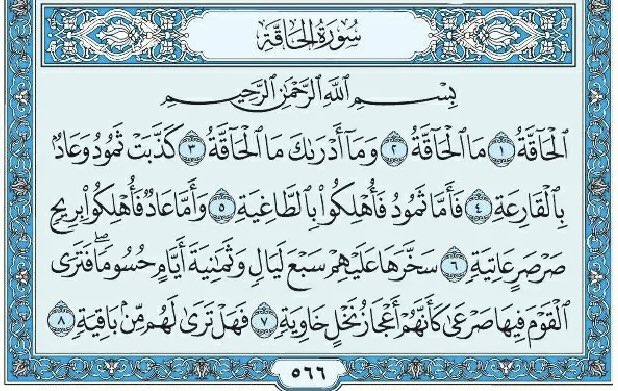 سُورَةُ الحَاقَّةِ
بِسْمِ ٱللَّهِ ٱلرَّحْمَٰنِ ٱلرَّحِيمِ
ٱلْحَآقَّةُ ١ مَا ٱلْحَآقَّةُ ٢ وَمَآ أَدْرَىٰكَ مَا ٱلْحَآقَّةُ ٣ كَذَّبَتْ ثَمُودُ وَعَادٌۢ
بِٱلْقَارِعَةِ ٤ فَأَمَّا ثَمُودُ فَأُهْلِكُوا۟ بِٱلطَّاغِيَةِ ٥ وَأَمَّا عَادٌ فَأُهْلِكُوا۟ بِرِيحٍ
صَرْصَرٍ عَاتِيَةٍ ٦ سَخَّرَهَا عَلَيْهِمْ سَبْعَ لَيَالٍ وَثَمَٰنِيَةَ أَيَّامٍ حُسُومًاۖ فَتَرَى
ٱلْقَوْمَ فِيهَا صَرْعَىٰ كَأَنَّهُمْ أَعْجَازُ نَخْلٍ خَاوِيَةٍ ٧ فَهَلْ تَرَىٰ لَهُم مِّنۢ بَاقِيَةٍ ٨
٥٦٦